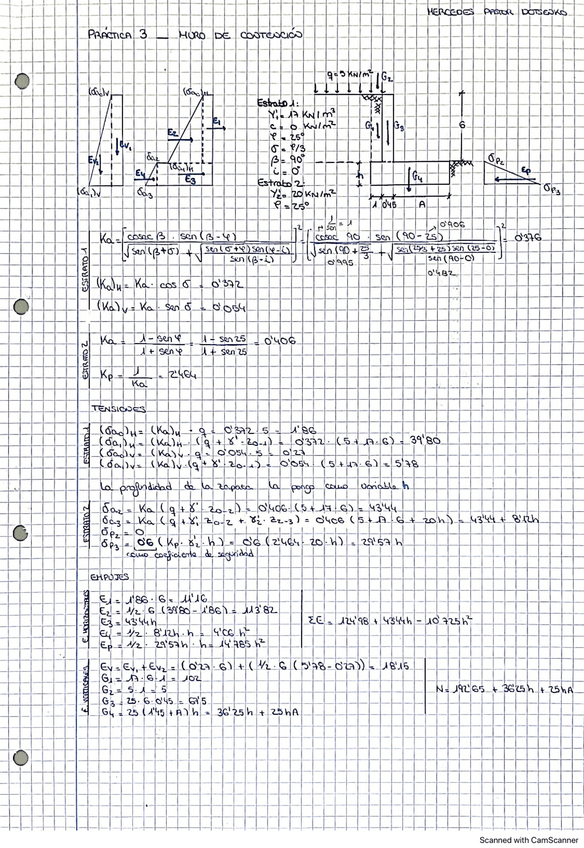 MERCEDES PASTOR
PRÁCTICA 3 _ MURO DE CONTENCIÓN
(σa₀)V
(σa₁)V
EV₁
EV₂
(σa₀)H
E₁
E₂
σa₂
(σa₁)H
E₃
E₄
σa₃
Estrato 1:
γ'₁ = 17 KN/m³
c = 0 KN/m²
φ = 25°
σ = φ/3
β = 90°
i = 0°
Estrato 2:
γ'₂ = 20 KN/m²
φ = 25°
q = 5 KN/m²
G₂
G₁
G₃
6
h
G₄
1 0'45 A
σp₂
Ep
σp₃
ESTRATO 1
Ka = [cosec β · sen (β-φ) / (√sen (β+σ) + √(sen (σ+φ) sen (φ-i) / sen (β-i)))]² = [cosec 90 · sen (90-25) / (√sen (90+25/3) + √(sen (25/3+25) sen (25-0) / sen (90-0)))]² = 0'376
1/sen = 1
0'906
0'995
0'482
(Ka)H = Ka · cos σ = 0'372
(Ka)V = Ka · sen σ = 0'054
ESTRATO 2
Ka = (1 - sen φ)/(1 + sen φ) = (1 - sen 25)/(1 + sen 25) = 0'406
Kp = 1/Ka = 2'464
TENSIONES
ESTRATO 1
(σa₀)H = (Ka)H · q = 0'372 · 5 = 1'86
(σa₁)H = (Ka)H · (q + γ' · z₀₋₁) = 0'372 · (5 + 17 · 6) = 39'80
(σa₀)V = (Ka)V · q = 0'054 · 5 = 0'27
(σa₁)V = (Ka)V · (q + γ' · z₀₋₁) = 0'054 (5 + 17 · 6) = 5'78
La profundidad de la zapata la pongo como variable h
ESTRATO 2
σa₂ = Ka (q + γ' · z₀₋₂) = 0'406 (5 + 17 · 6) = 43'44
σa₃ = Ka (q + γ'₁ z₀₋₂ + γ'₂ · z₂₋₃) = 0'406 (5 + 17 · 6 + 20h) = 43'44 + 8'12h
σp₂ = 0
σp₃ = 0'6 (Kp · γ'₂ · h) = 0'6 (2'464 · 20 · h) = 29'57 h
como coeficiente de seguridad
EMPUJES
E. HORIZONTALES
E₁ = 1'86 · 6 = 11'16
E₂ = 1/2 · 6 (39'80 - 1'86) = 113'82
E₃ = 43'44h
E₄ = 1/2 · 8'12h · h = 4'06 h²
Ep = 1/2 · 29'57h · h = 14'785 h²
ΣE = 124'98 + 43'44h - 10'725h²
E. VERTICALES
EV = EV₁ + EV₂ = (0'27 · 6) + (1/2 · 6 (5'78 - 0'27)) = 18'15
G₁ = 17 · 6 · 1 = 102
G₂ = 5 · 1 = 5
G₃ = 25 · 6 · 0'45 = 67'5
G₄ = 25 (1'45 + A) h = 36'25h + 25hA
N = 192'65 + 36'25h + 25hA
Scanned with CamScanner